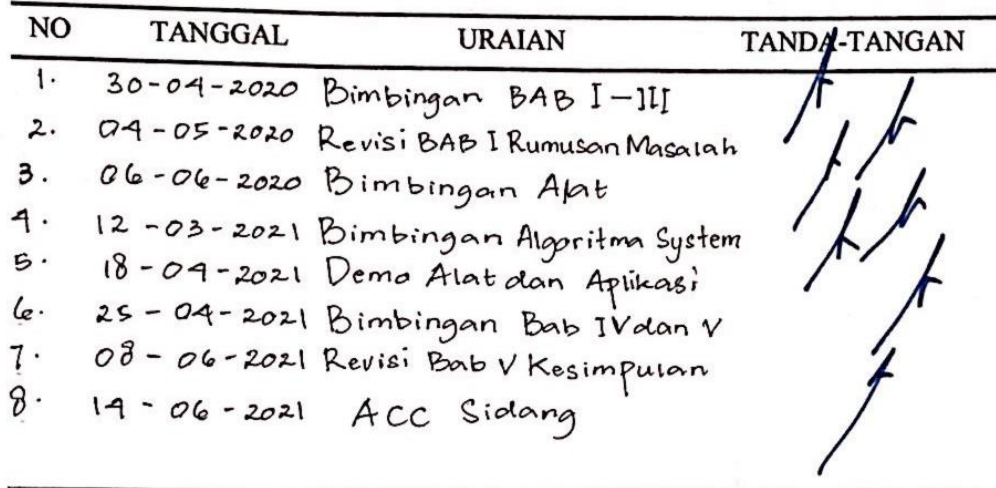 NO TANGGAL URAIAN TANDA-TANGAN
1. 30-04-2020 Bimbingan BAB I-III
2. 04-05-2020 Revisi BAB I Rumusan Masalah
3. 06-06-2020 Bimbingan Alat
4. 12-03-2021 Bimbingan Algoritma System
5. 18-04-2021 Demo Alat dan Aplikasi
6. 25-04-2021 Bimbingan Bab IV dan V
7. 08-06-2021 Revisi Bab V Kesimpulan
8. 14-06-2021 ACC Sidang